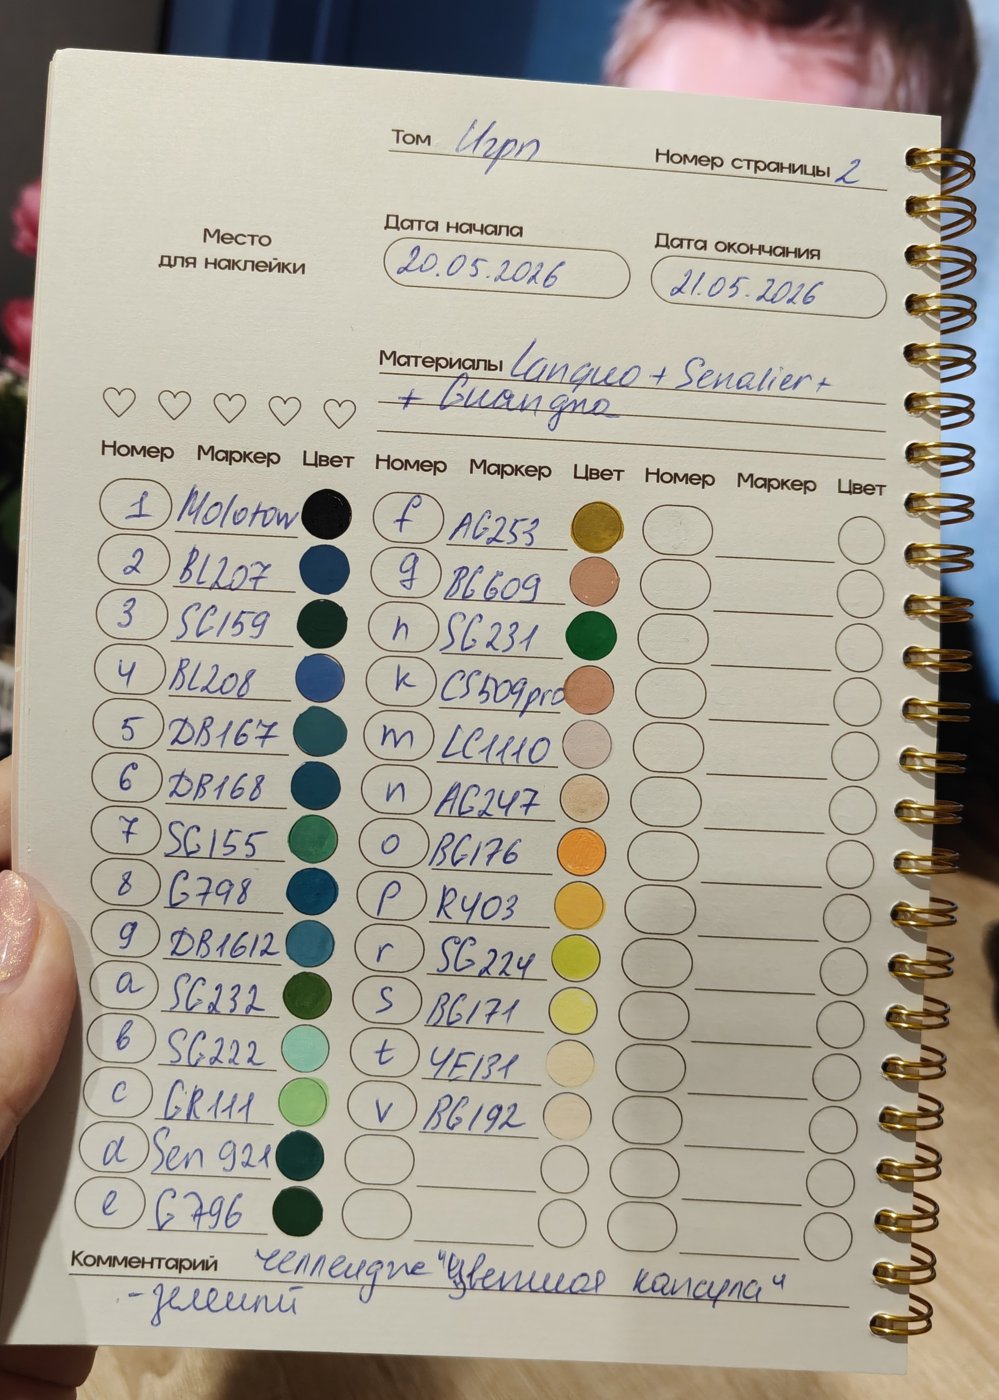 Том Игрп Номер страницы 2
Место
для наклейки
Дата начала Дата окончания
20.05.2026 21.05.2026
Материалы Languo + Senalier +
+ Guangna
Номер Маркер Цвет Номер Маркер Цвет Номер Маркер Цвет
1 Molotow f AG253
2 BL207 g BG609
3 SG159 h SG231
4 BL208 k CS509pro
5 DB167 m LC1110
6 DB168 n AG247
7 SG155 o BG176
8 G798 p RY03
9 DB1612 r SG224
a SG232 s BG171
b SG222 t YE131
c GR111 v BG192
d Sen 921
e G796
Комментарий челлендж "Цветная капсула"
- зеленый